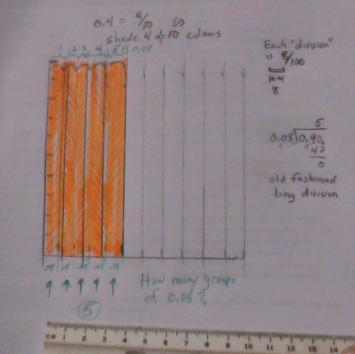 0.4 = 4/10 so
shade 4 of 10 colums
1 2 3 4 5
0.08
Each "division"
is 8/100
8
5
0.08)0.40.
40
0
old fashioned
long division
.08 .08 .08 .08 .08
How many groups
of 0.08?
5
cm 1 2 3 4 5 6 7 8 9 10 11 12 13 14